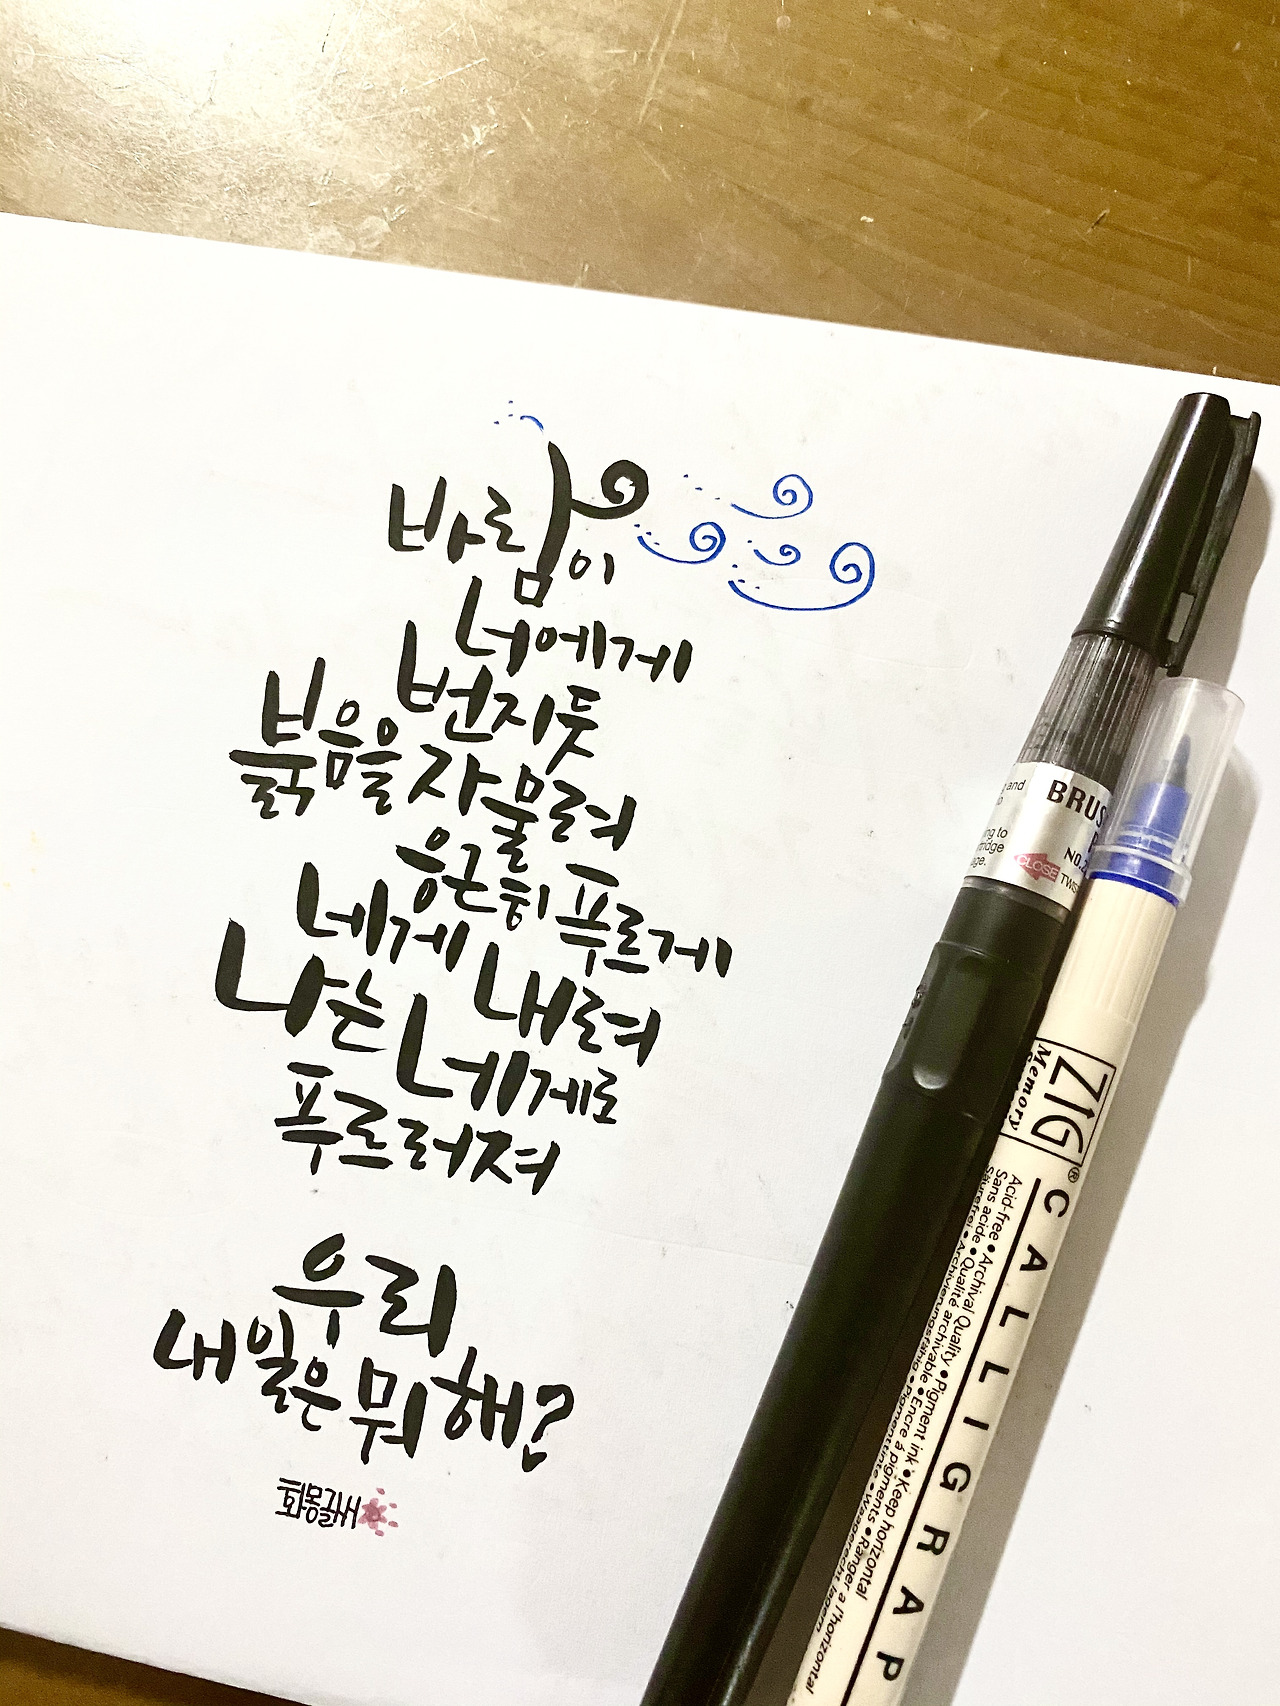 바람이
너에게
번지듯
붉음을 자물려
응근히 푸르게
네게 내려
나는 네게로
푸르러져
우리
내일은 뭐해?
화몽길새
BRUS
NO.2
CLOSE TWIS
ZIG
Memory
CALLIGRAP
Acid-free • Archival Quality • Pigment ink • Keep horizontal
Sans acide • Qualité archivable • Encre à pigments • Ranger à l'horizontal
Säurefrei • Archivierungsfähig • Pigmenttinte • Waagerecht lagern